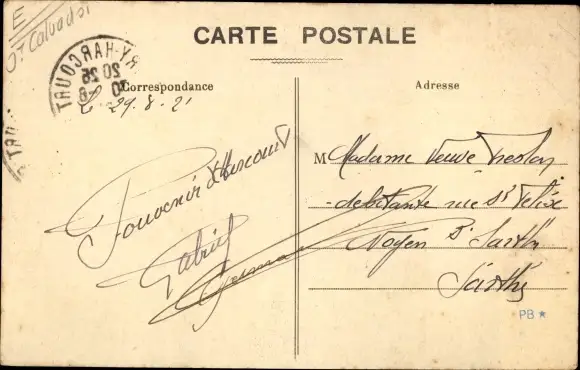 E
Calvados
CARTE POSTALE
RY-HARCOURT
20 26
30 -8
Correspondance
Adresse
29.8.21
Souvenir d'Harcourt
Gabriel
Germain
M Madame Veuve
débitante rue St Félix
Noyen s/ Sarthe
Sarthe
PB ★